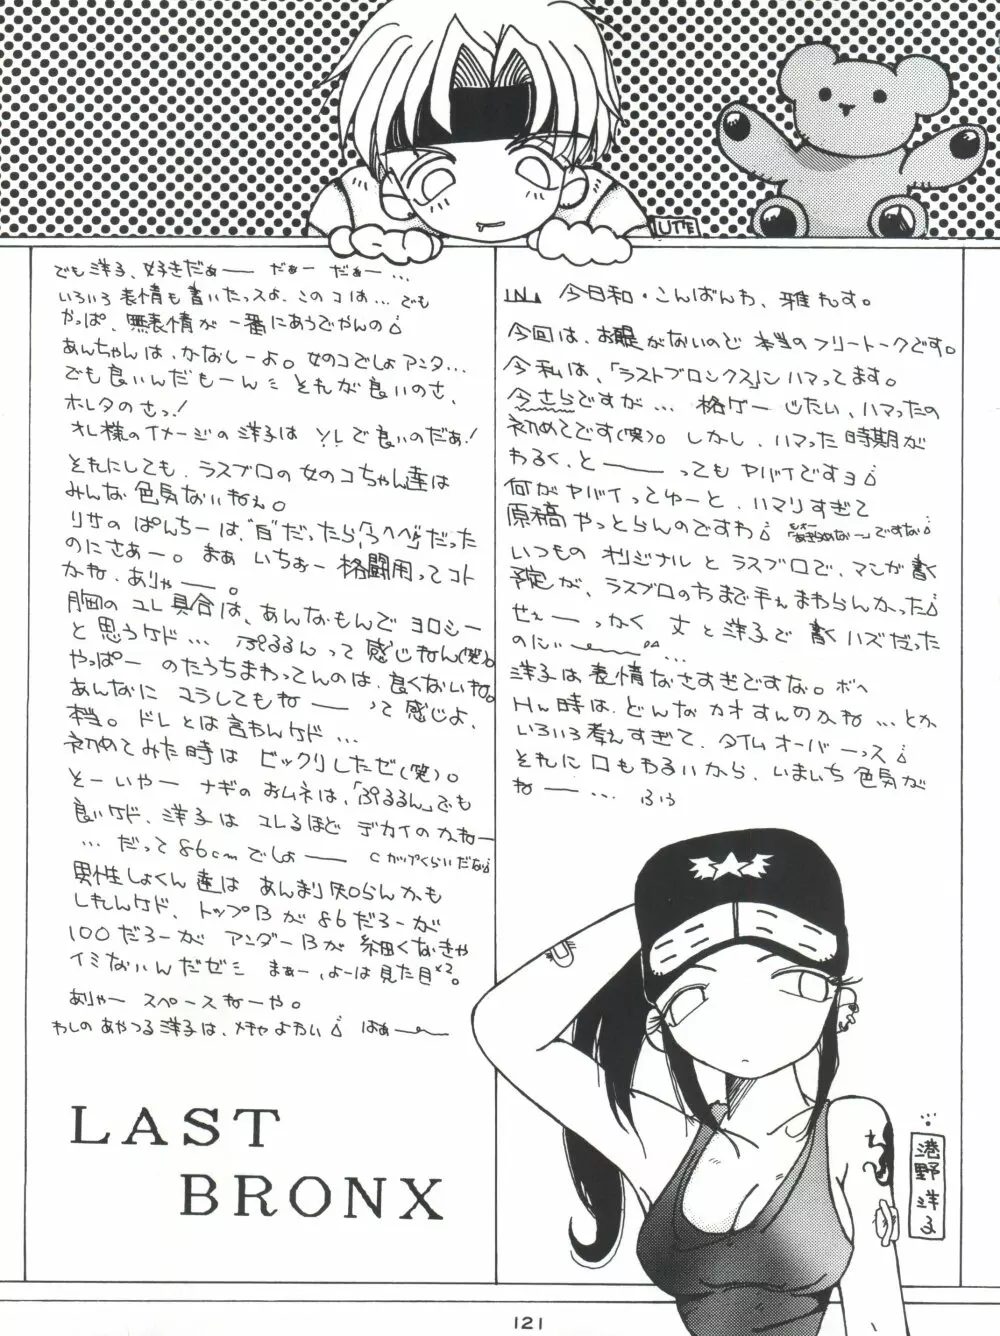 今日和・こんばんわ、雅れす。
今回は、お題がないので 本当のフリートークです。
今私は、「ラストブロンクス」にハマってます。
今さらですが… 格ゲーじたい、ハマったの
初めてです(笑)。しかし、ハマった時期が
わるく、と――ってもヤバイですョ
何がヤバイってゆーと、ハマリすぎて
原稿やっとらんのですわ
いつもの オリジナルと ラスブロで、マンガ書く
予定が、ラスブロのちまで手ェまわらんかった
せぇ――っかく 丈と洋子で 書くハズだった
のにぃ――…
洋子は表情なさすぎですな。ボヘ
H時は、どんなカオすんのかね…とか
いろいろ考えすぎて、タイムオーバーっス
それに口もわるいから、いまいち色気が
ね――… ふぅ
でも洋子、好きだぁ―― だぁー だぁー…
いろいろ表情も書いたっスよ、このコは…でも
やっぱ、無表情が一番にあうでやんの
あんちゃんは、かなしーよ。女のコでしょアンタ…
でも良いんだもーんミ それが良いのさ、
ホレタのさっ!
オレ様のイメージの洋子は ソレで良いのだぁ!
それにしても、ラスブロの女のコちゃん達は
みんな色気ないねぇ。
リサの ぱんちーは“白”だったら
のにさあー。まぁ いちおー 格闘用ってコト
かね、ありゃ――。
胸のユレ具合は、あんなもんでヨロシー
と思うケド… ぷるるんって感じねん(笑)。
やっぱー のたうちまわってんのは、良くないね。
あんなに ユラしてもね――って感じよ、
本当。ドレとは言わんケド…
初めてみた時は ビックリしたゼ(笑)。
とーいやー ナギのおムネは、「ぷるるん」でも
良いケド、洋子は ユレるほど デカイのかねー
…だって86cmでしょ―― Cカップくらいだな
男性しょくん達は あんまり知らんかも
しれんケド、トップBが86だろーが
100だろーが アンダーBが 細くなきゃ
イミないんだゼミ まぁー、よーは見た目×2。
ありゃー スペースねーや。
わしのあやつる洋子は、メチャよわい はぁ――
LAST
BRONX
港野洋子
121